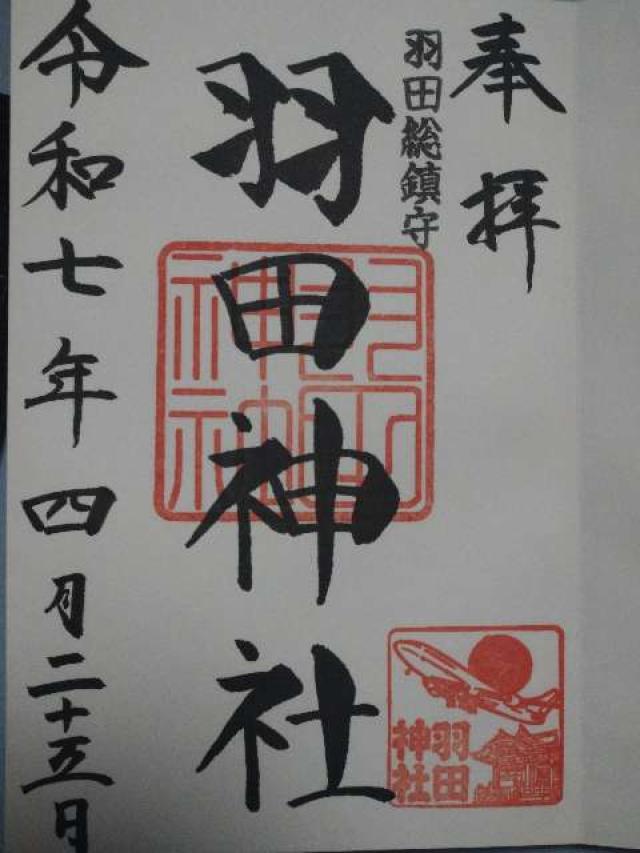 奉拝
羽田総鎮守
羽田神社
羽田神社
羽田
神社
令和七年四月二十五日